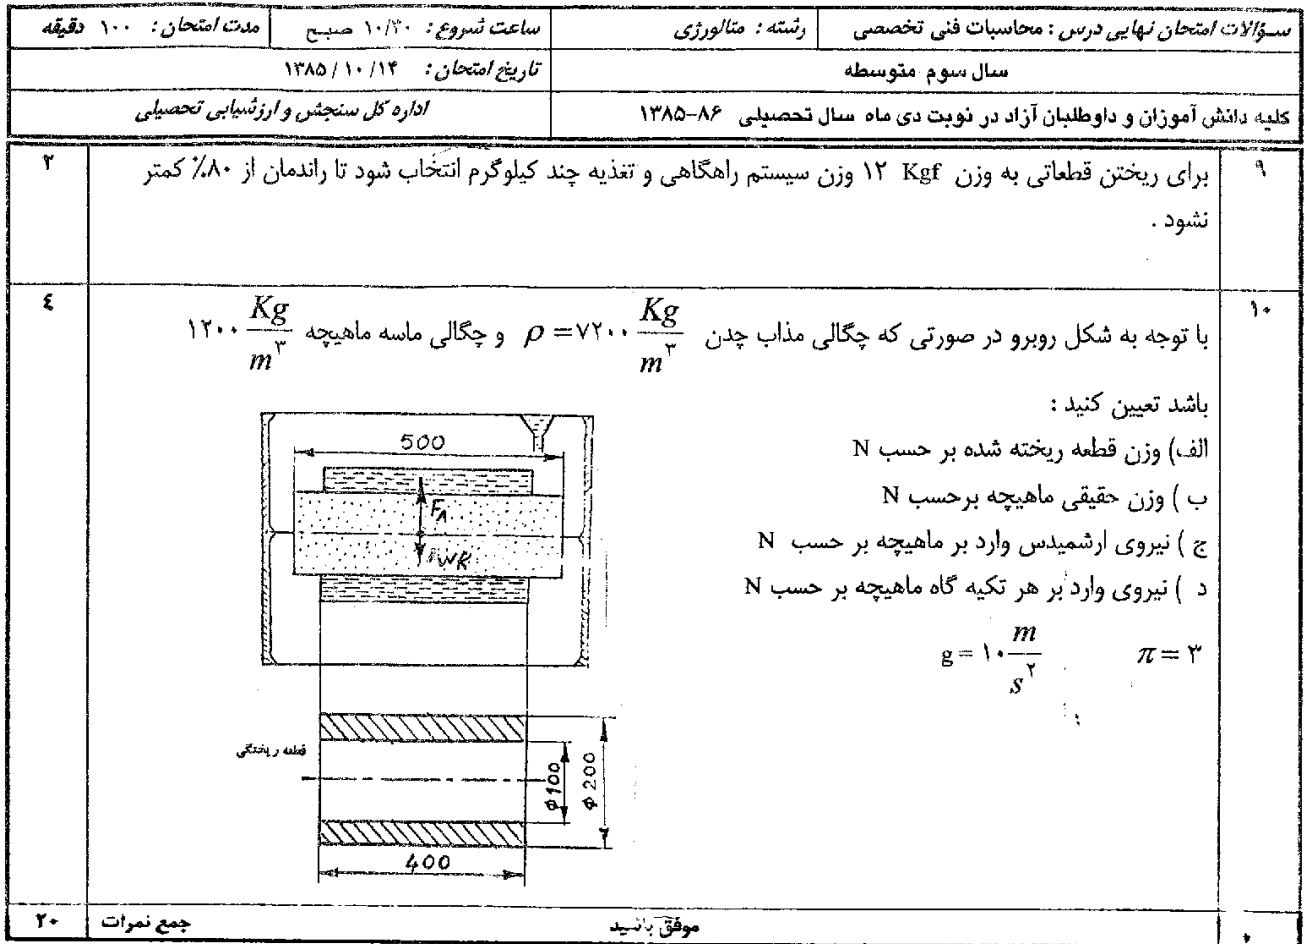 سؤالات امتحان نهایی درس : محاسبات فنی تخصصی
رشته : متالورژی
ساعت شروع : ۱۰/۳۰ صبح
مدت امتحان : ۱۰۰ دقیقه
سال سوم متوسطه
تاریخ امتحان : ۱۳۸۵/۱۰/۱۴
کلیه دانش آموزان و داوطلبان آزاد در نوبت دی ماه سال تحصیلی ۸۶-۱۳۸۵
اداره کل سنجش و ارزشیابی تحصیلی
۹
برای ریختن قطعاتی به وزن ۱۲ Kgf وزن سیستم راهگاهی و تغذیه چند کیلوگرم انتخاب شود تا راندمان از ۸۰٪ کمتر
نشود .
۲
۱۰
با توجه به شکل روبرو در صورتی که چگالی مذاب چدن ρ = ۷۲۰۰ Kg/m^۳ و چگالی ماسه ماهیچه ۱۲۰۰ Kg/m^۳
۴
باشد تعیین کنید :
الف) وزن قطعه ریخته شده بر حسب N
ب ) وزن حقیقی ماهیچه برحسب N
ج ) نیروی ارشمیدس وارد بر ماهیچه بر حسب N
د ) نیروی وارد بر هر تکیه گاه ماهیچه بر حسب N
π = ۳
g = ۱۰ m/s^۲
500
FA
WK
قطعه ریختگی
φ100
φ200
400
موفق باشید
جمع نمرات
۲۰